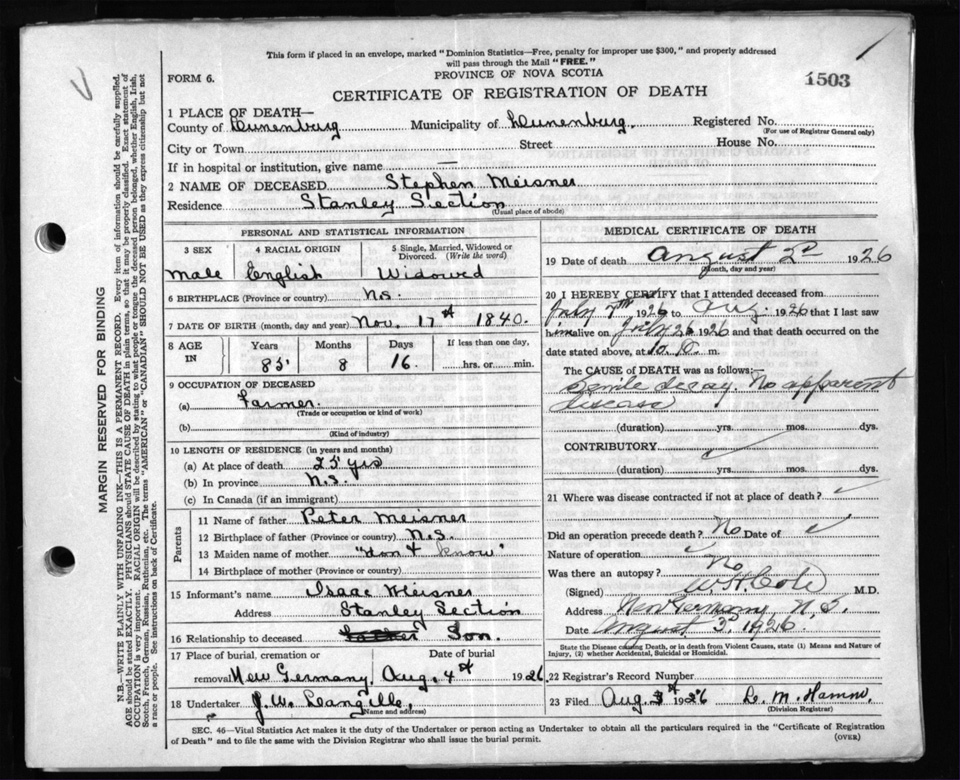 This form if placed in an envelope, marked "Dominion Statistics—Free, penalty for improper use $300," and properly addressed
will pass through the Mail "FREE."
FORM 6.
PROVINCE OF NOVA SCOTIA
1503
CERTIFICATE OF REGISTRATION OF DEATH
1 PLACE OF DEATH—
County of Lunenburg Municipality of Lunenburg Registered No.
(For use of Registrar General only)
City or Town Street House No.
If in hospital or institution, give name —
2 NAME OF DECEASED Stephen Meisner
Residence Stanley Section
(Usual place of abode)
PERSONAL AND STATISTICAL INFORMATION
3 SEX 4 RACIAL ORIGIN 5 Single, Married, Widowed or
Divorced. (Write the word)
male English Widowed
6 BIRTHPLACE (Province or country) N.S.
7 DATE OF BIRTH (month, day and year) Nov. 17th 1840.
8 AGE IN Years Months Days If less than one day,
85 8 16. hrs. or min.
9 OCCUPATION OF DECEASED
(a) Farmer.
(Trade or occupation or kind of work)
(b)
(Kind of industry)
10 LENGTH OF RESIDENCE (in years and months)
(a) At place of death 25 yrs
(b) In province N.S.
(c) In Canada (if an immigrant)
Parents
11 Name of father Peter Meisner
12 Birthplace of father (Province or country) N.S.
13 Maiden name of mother "don't know"
14 Birthplace of mother (Province or country)
15 Informant's name Isaac Meisner
Address Stanley Section
16 Relationship to deceased father Son.
17 Place of burial, cremation or Date of burial
removal New Germany, Aug. 4th 1926
18 Undertaker J. W. Langille,
(Name and address)
MEDICAL CERTIFICATE OF DEATH
19 Date of death August 2d 1926
(Month, day and year)
20 I HEREBY CERTIFY that I attended deceased from
July 7th 1926 to Aug. 1926 that I last saw
him alive on July 26 1926 and that death occurred on the
date stated above, at m.
The CAUSE OF DEATH was as follows:—
Senile decay. No apparent
disease
(duration) yrs. mos. dys.
CONTRIBUTORY
(duration) yrs. mos. dys.
21 Where was disease contracted if not at place of death?
Did an operation precede death? No Date of
Nature of operation
Was there an autopsy? No
(Signed) W. H. Cole M.D.
Address New Germany, N.S.
Date August 3d, 1926.
State the Disease causing Death, or in death from Violent Causes, state (1) Means and Nature of
Injury, (2) whether Accidental, Suicidal or Homicidal.
22 Registrar's Record Number
23 Filed Aug 1926 M. Hamm,
(Division Registrar)
SEC. 46—Vital Statistics Act makes it the duty of the Undertaker or person acting as Undertaker to obtain all the particulars required in the "Certificate of Registration
of Death" and to file the same with the Division Registrar who shall issue the burial permit.
(OVER)
MARGIN RESERVED FOR BINDING
N.B.—WRITE PLAINLY WITH UNFADING INK—THIS IS A PERMANENT RECORD. Every item of information should be carefully supplied.
AGE should be stated EXACTLY. PHYSICIANS should STATE CAUSE OF DEATH in plain terms, so that it may be properly classified. Exact statement of
OCCUPATION is very important. RACIAL ORIGIN will be described by stating to what people or tongue the deceased person belonged, whether English, Irish,
Scotch, French, German, Russian, Ruthenian, etc. The terms "AMERICAN" or "CANADIAN" SHOULD NOT BE USED as they express citizenship but not
a race or people. See instructions on back of Certificate.